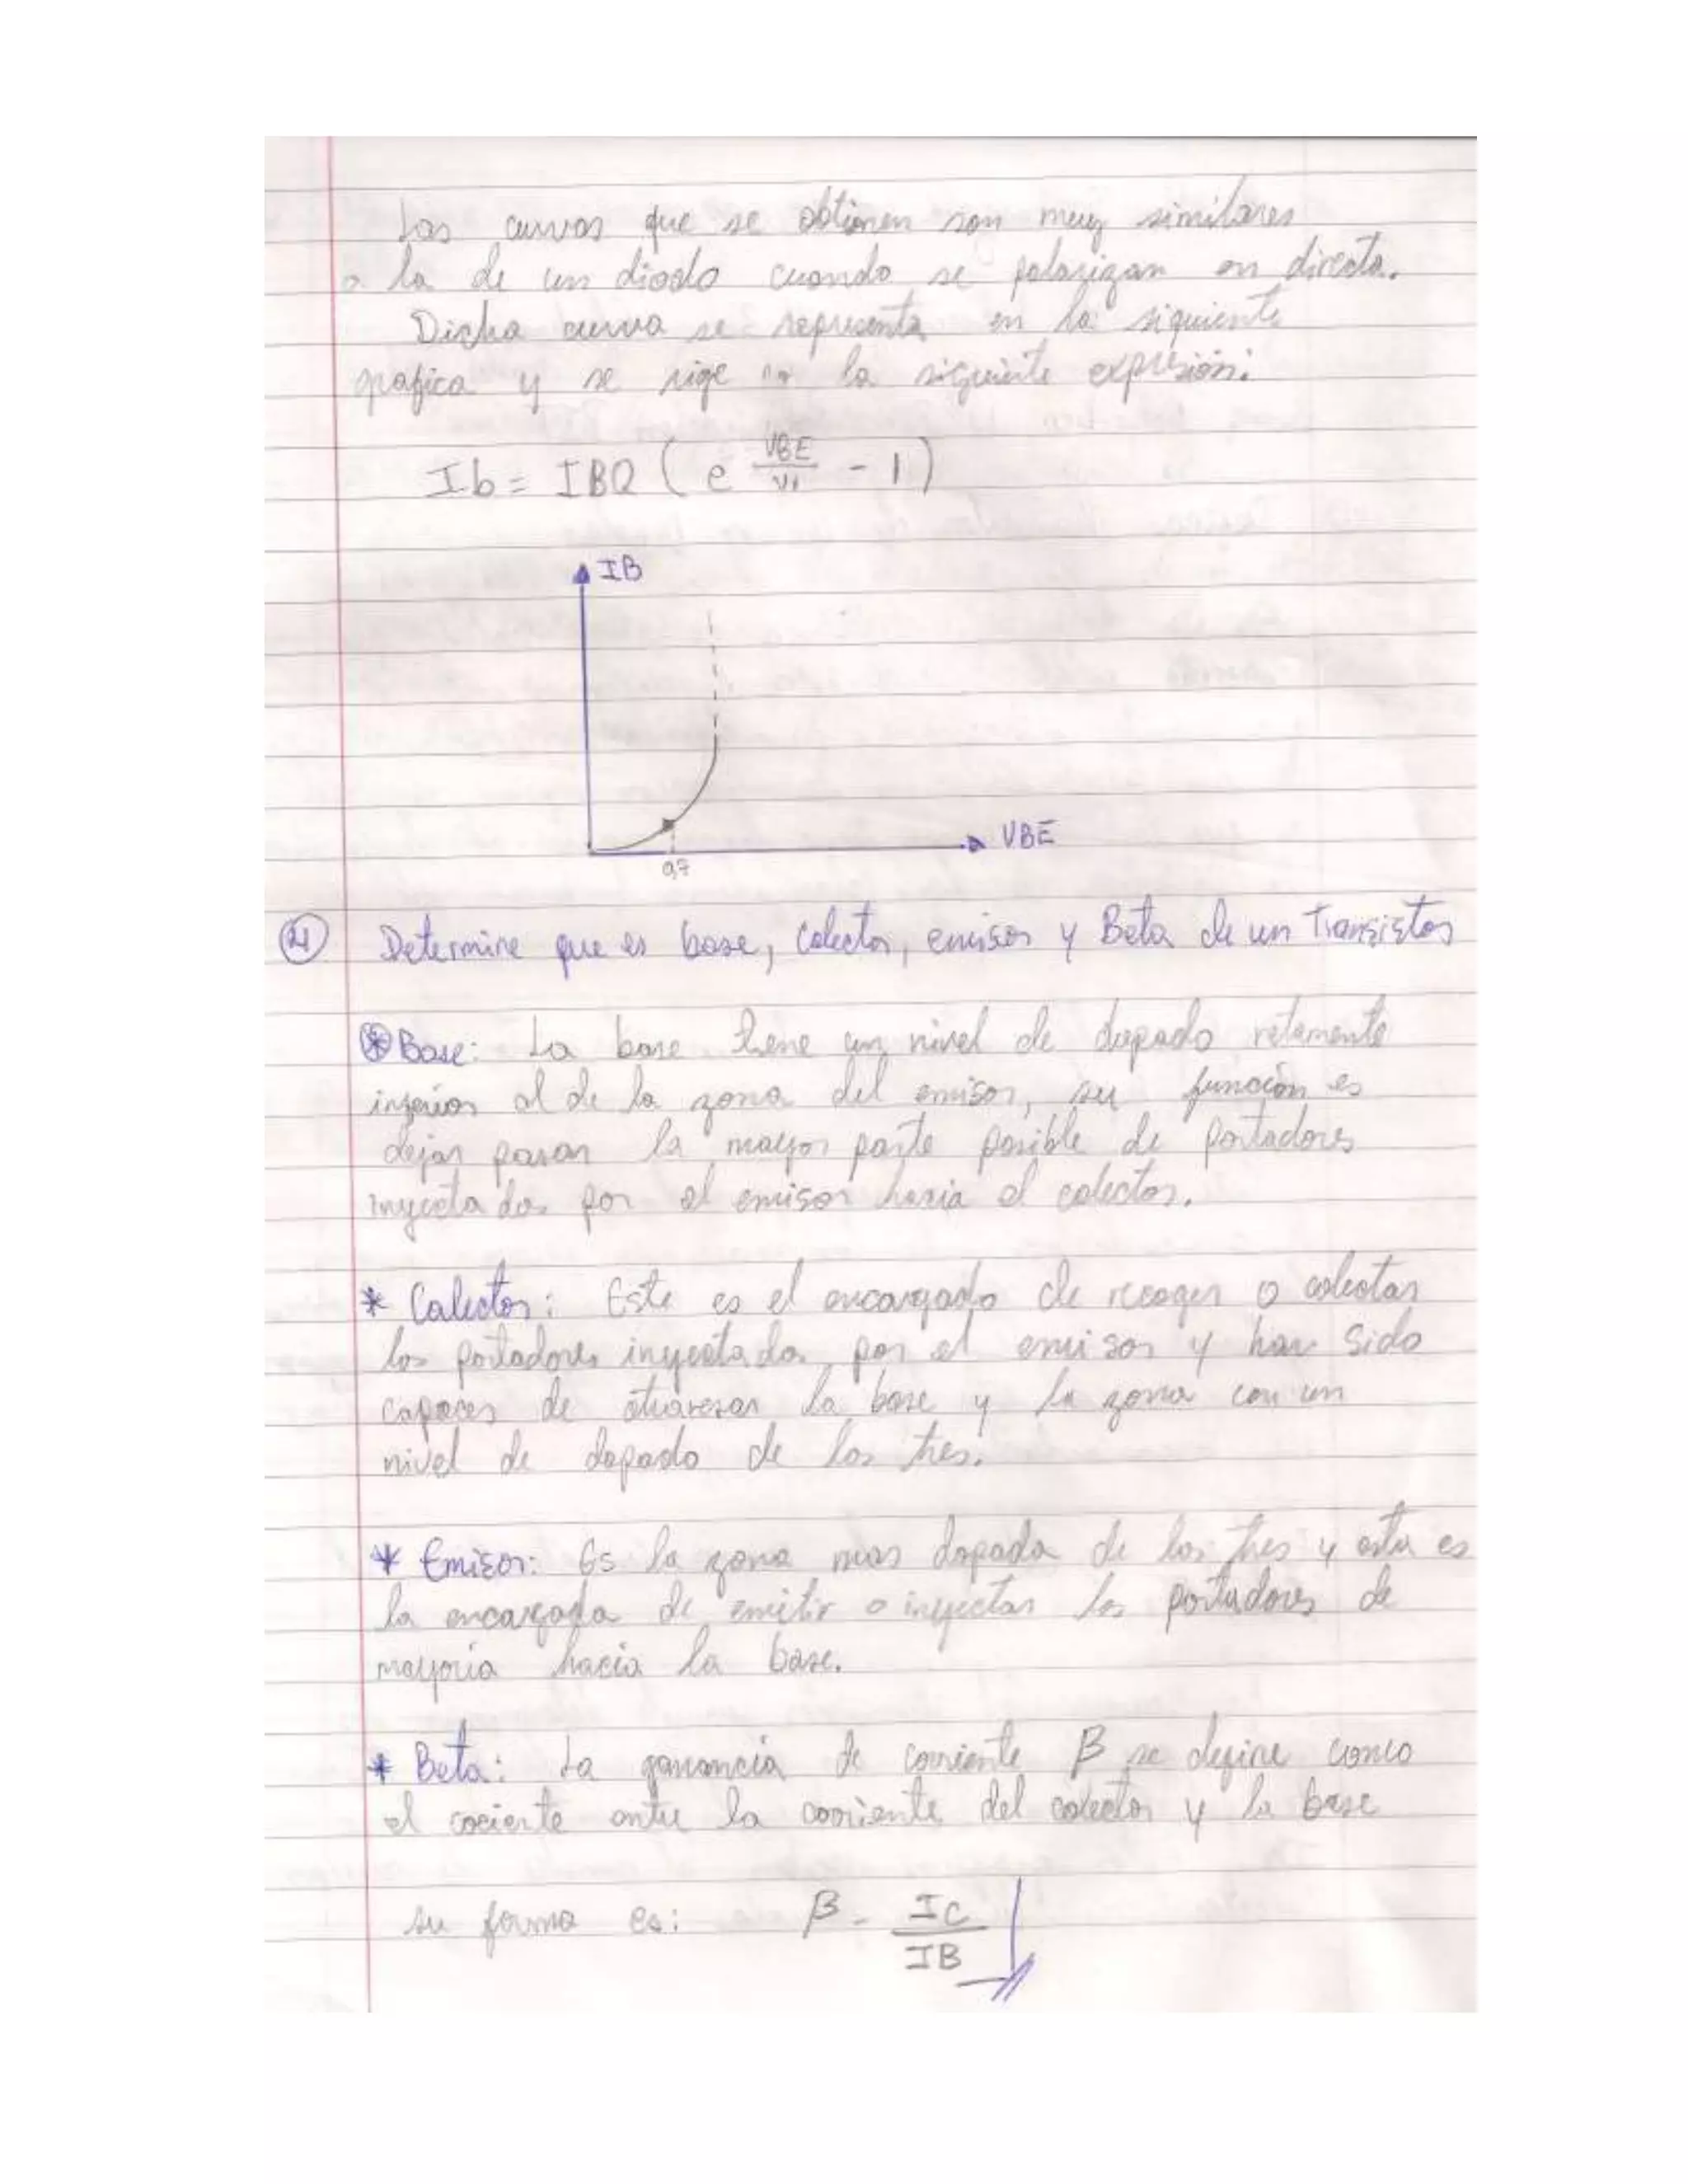 Las curvas que se obtienen son muy similares
a la de un diodo cuando se polarizan en directa.
Dicha curva se representa en la siguiente
grafica y se rige la siguiente expresión:
Ib = IBO ( e VBE/VT - 1 )
IB
VBE
0,7
Determine que es base, colector, emisor y Beta de un Transistor
* Base: La base tiene un nivel de dopado netamente
inferior al de la zona del emisor, su función es
dejar pasar la mayor parte posible de portadores
inyectados por el emisor hacia el colector.
* Colector: Este es el encargado de recoger o colectar
los portadores inyectados por el emisor y han sido
capaces de atravesar la base y la zona con un
nivel de dopado de los tres.
* Emisor: Es la zona mas dopada de los tres y esta es
la encargada de emitir o inyectar los portadores de
mayoria hacia la base.
* Beta: La ganancia de corriente β se define como
el cociente entre la corriente del colector y la base
su forma es: β = IC/IB